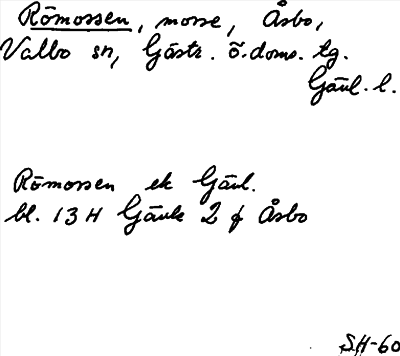 Römossen, mosse, Åsbo,
Valbo sn, Gästr. ö. doms. tg.
Gävl. l.
Römossen ek Gävl.
bl. 13 H Gävle 2 f Åsbo
SH-60